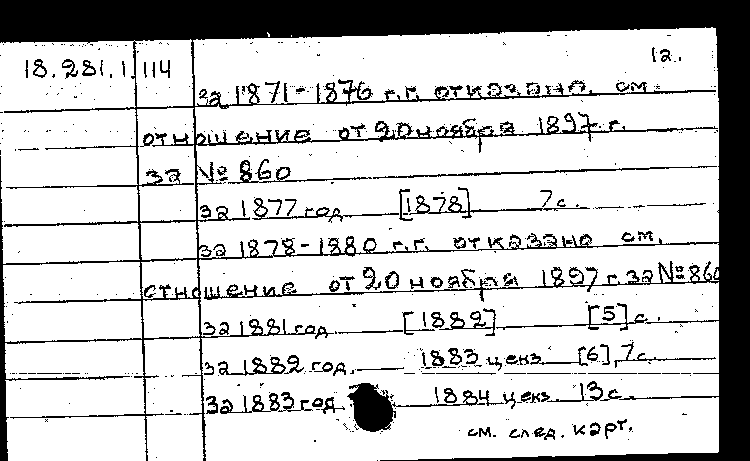 12.
18.281.1.114
за 1871-1876 г.г. отказано. см.
отношение от 20 ноября 1897 г.
за № 860
за 1877 год [1878] 7с.
за 1878-1880 г.г. отказано см.
отношение от 20 ноября 1897 г. за № 860
за 1881 год [1882] [5] с.
за 1882 год. 1883 ценз. [6], 7с.
за 1883 год 1884 ценз. 13с.
см. след. карт.